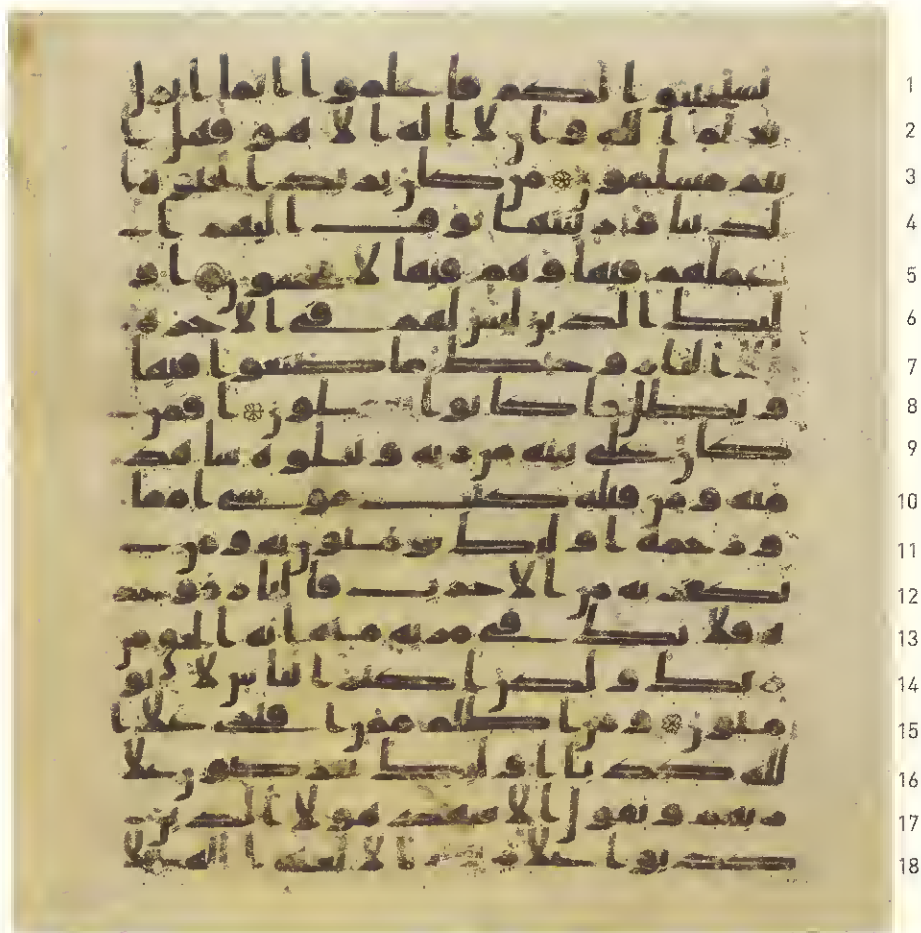 يستجيبوا لكم فاعلموا انما انزل 1
بعلم الله وان لا اله الا هو فهل ا 2
نتم مسلمون من كان يريد الحيوة ا 3
لدنيا وزينتها نوف اليهم ا 4
عملهم فيها وهم فيها لا يبخسون او 5
ليك الذين ليس لهم في الاخرة 6
الا النار وحبط ما صنعوا فيها 7
وبطل ما كانوا يعملون افمن 8
كان على بينة من ربه ويتلوه شاهد 9
منه ومن قبله كتب موسى اماما 10
ورحمة اوليك يومنون به ومن 11
يكفر به من الاحزب فالنار موعد 12
ه فلا تك في مرية منه انه الحق من 13
ربك ولكن اكثر الناس لا يو 14
منون ومن اظلم ممن افترى على ا 15
لله كذبا اوليك يعرضون على 16
ربهم ويقول الاشهد هولا الذين 17
كذبوا على ربهم الا لعنة الله على 18